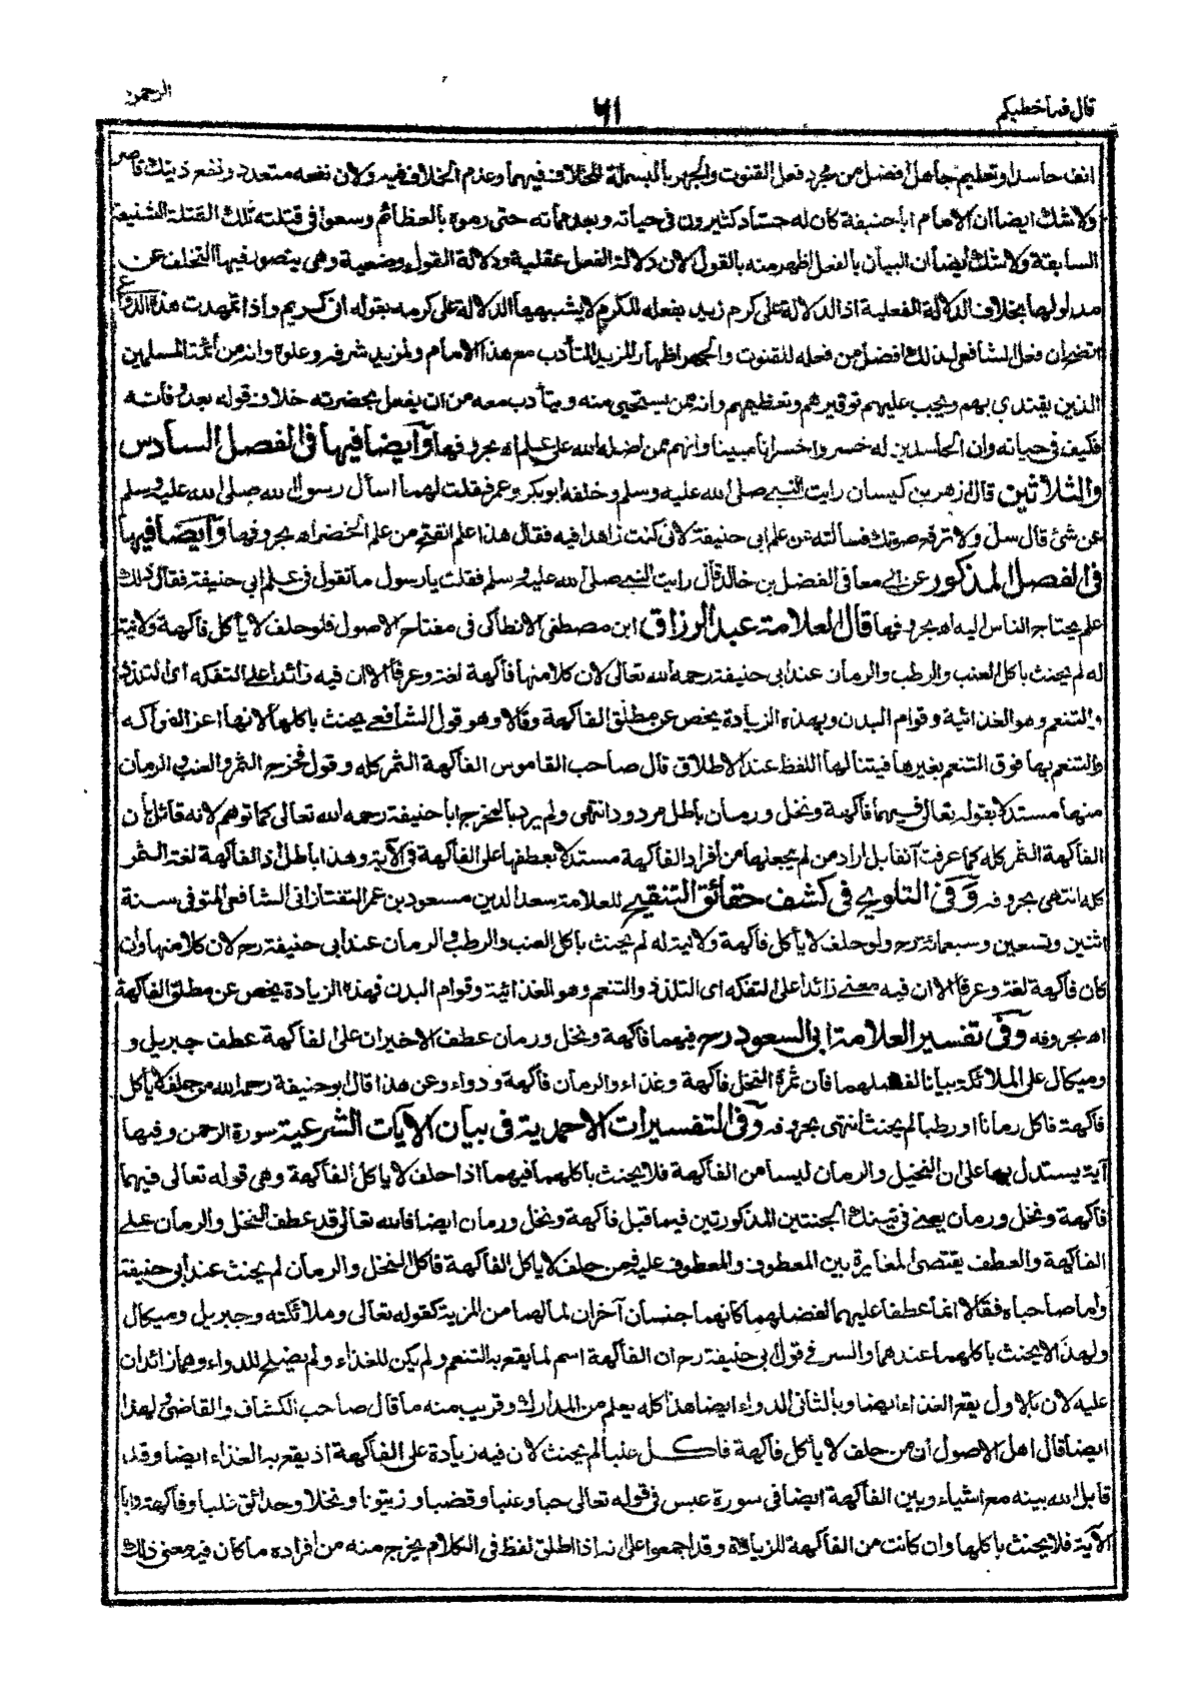 قال فما خطبكم
٦١
الرحمن
انف حاسد او تعليم جاهل افضل من مجرد فعل القنوت والجهر بالبسملة للخلاف فيهما وعدم الخلاف فيه ولان نفعه متعدد ونفع ذينك قاصر
ولا شك ايضا ان الامام ابا حنيفة كان له حساد كثيرون فى حياته وبعد مماته حتى رموه بالعظائم وسعوا فى قتلته تلك القتلة الشنيعة
السابقة ولا شك ايضا ان البيان بالفعل اظهر منه بالقول لان دلالة الفعل عقلية ودلالة القول وضعية وهى يتصور فيها التخلف عن
مدلولها بخلاف الدلالة الفعلية اذ الدلالة على كرم زيد بفعله للكرم لا يشبهها الدلالة على كرمه بقوله انى كريم واذا تمهدت هذه الدواعى
اتضح ان فعل الشافعى لذلك افضل من فعله للقنوت والجهر اظهارا لمزيد التأدب مع هذا الامام ولمزيد شرفه وعلوه وانه من ائمة المسلمين
الذين يقتدى بهم ويجب عليهم توقيرهم وتعظيمهم وانه ممن يستحيى منه ويتأدب معه من ان يفعل بحضرته خلاف قوله بعد وفاته
فكيف فى حياته وان الحاسدين له خسروا خسرانا مبينا وانهم ممن اضله الله على علم اه بحروفها وايضا فيها فى الفصل السادس
والثلاثين قال ازهر بن كيسان رايت النبى صلى الله عليه وسلم وخلفه ابو بكر وعمر فقلت لهما اسأل رسول الله صلى الله عليه وسلم
عن شئ قال سل ولا ترفع صوتك فسالته عن علم ابى حنيفة لانى كنت زاهدا فيه فقال هذا علم انفتح من علم الخضر اه بحروفها وايضا فيها
فى الفصل المذكور عن ابى معافى الفضل بن خالد قال رايت النبى صلى الله عليه وسلم فقلت يا رسول ما تقول فى علم ابى حنيفة فقال ذلك
علم يحتاج الناس اليه اه بحروفها قال العلامة عبد الرزاق ابن مصطفى الانطاكى فى مفتاح الاصول فلو حلف لا يأكل فاكهة ولا نية
له لم يحنث باكل العنب والرطب والرمان عند ابى حنيفة رحمه الله تعالى لان كلا منها فاكهة لغة وعرفا الا ان فيه زائدا على التفكه اى التلذذ
والتنعم وهو الغذائية وقوام البدن وبهذه الزيادة يخص عن مطلق الفاكهة وقالا وهو قول الشافعى يحنث باكلها لانها اعز الفواكه
والتنعم بها فوق التنعم بغيرها فيتنالها اللفظ عند الاطلاق قال صاحب القاموس الفاكهة الثمر كله وقول مخرج الثمر والعنب والرمان
منها مستدلا بقوله تعالى فيهما فاكهة ونخل ورمان باطل مردود انتهى ولم يرد بالمخرج ابا حنيفة رحمه الله تعالى كما توهم لانه قائل بأن
الفاكهة الثمر كله كما عرفت آنفا بل اراد من لم يجعلها من افراد الفاكهة مستدلا بعطفها على الفاكهة فى الآية وهذا باطل اذ الفاكهة لغة الثمر
كله انتهى بحروفه وفى التلويح فى كشف حقائق التنقيح للعلامة سعد الدين مسعود بن عمر التفتازانى الشافعى المتوفى سنة
اثنين وتسعين وسبعمائة رح ولو حلف لا يأكل فاكهة ولا نية له لم يحنث باكل العنب والرطب والرمان عند ابى حنيفة رح لان كلا منها وان
كان فاكهة لغة وعرفا الا ان فيه معنى زائدا على التفكه اى التلذذ والتنعم وهو الغذائية وقوام البدن فهذه الزيادة يخص عن مطلق الفاكهة
اه بحروفه وفى تفسير العلامة ابى السعود رح فيهما فاكهة ونخل ورمان عطف الاخيران على الفاكهة عطف جبريل و
وميكال على الملائكة بيانا لفضلهما فان ثمرة النخل فاكهة وغذاء والرمان فاكهة ودواء وعن هذا قال ابو حنيفة رحمه الله من حلف لا يأكل
فاكهة فاكل رمانا او رطبا لم يحنث انتهى بحروفه وفى التفسيرات الاحمدية فى بيان الآيات الشرعية سورة الرحمن وفيها
آية يستدل بها على ان النخيل والرمان ليسا من الفاكهة فلا يحنث باكلهما فيهما اذا حلف لا ياكل الفاكهة وهى قوله تعالى فيهما
فاكهة ونخل ورمان يعنى فى تينك الجنتين المذكورتين فيما قبل فاكهة ونخل ورمان ايضا فالله تعالى قد عطف النخل والرمان على
الفاكهة والعطف يقتضى المغايرة بين المعطوف والمعطوف عليه فمن حلف لا ياكل الفاكهة فاكل النخل والرمان لم يحنث عند ابى حنيفة
واما صاحباه فقالا انما عطفا عليهما لفضلهما كانهما جنسان آخران لما لهما من المزية كقوله تعالى وملائكته وجبريل وميكال
ولهذا لا يحنث باكلهما عندهما والسر فى قول ابى حنيفة رح ان الفاكهة اسم لما يقع به التنعم ولم يكن للغذاء ولم يصلح للدواء وهما زائدان
عليه لان بالاول يقع الغذاء ايضا وبالثانى الدواء ايضا هذا كله يعلم من المدارك وقريب منه ما قال صاحب الكشاف والقاضى لهذا
ايضا قال اهل الاصول ان من حلف لا يأكل فاكهة فاكل عنبا لم يحنث لان فيه زيادة على الفاكهة اذ يقع به الغذاء ايضا وقد
قابل الله بينه مع اشياء وبين الفاكهة ايضا فى سورة عبس فى قوله تعالى حبا وعنبا وقضبا وزيتونا ونخلا وحدائق غلبا وفاكهة وابا
الآية فلا يحنث باكلها وان كانت من الفاكهة للزيادة وقد اجمعوا على انه اذا اطلق لفظ فى الكلام يخرج منه من افراده ما كان فيه معنى ذلك